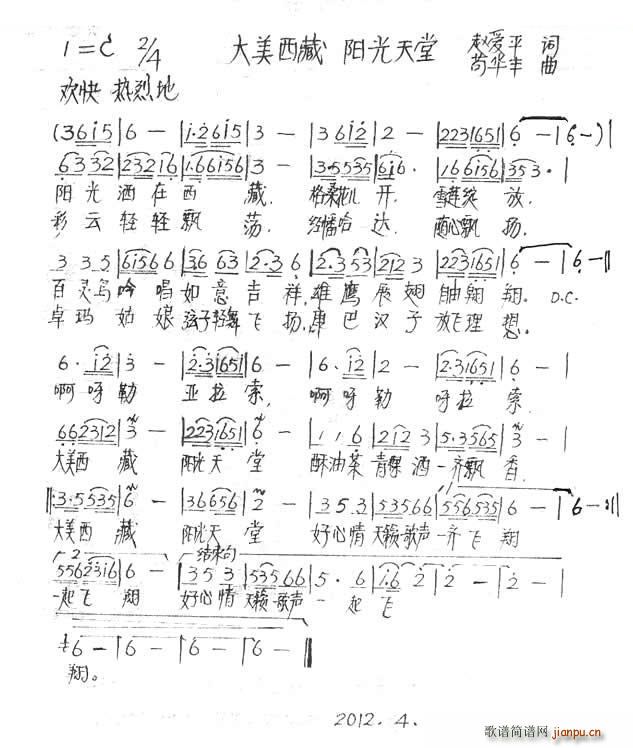 1=C 2/4 大美西藏 阳光天堂 赵爱平 词
苟华丰 曲
欢快 热烈地
(36i5|6 -|i·26i5|3 -|36i2|2 -|2231651|6 -|6 -)|
6332|23216|166156|3 -|3·5535|6i6·|166156|353·|
阳光洒在西 藏. 格桑花儿 开. 雪莲绽 放.
彩云轻轻飘 荡. 经幡哈 达. 随心飘 扬.
3 35|6156 6|36 63|2·3 6|2·3 53|212 3|2231651|6 -|6 -‖
百灵鸟吟唱如意吉祥,雄鹰展翅自由翱 翔. D.C.
卓玛姑娘弦子轻舞飞扬,康巴汉子放飞理 想.
6· i2|3 -|2·31651|6 -|6· i2|2 -|2·31651|6 -|
啊呀勒 亚拉索, 啊呀勒 呀拉 索
662312|3 -|2231651|6 -|116|212 3|5·3565|3 -|
大美西 藏 阳光天 堂 酥油茶青稞酒一齐飘 香.
‖:3·5535|6 -|36656|2 -|35 3|53566|556535|6 -|6 -:‖
大美西 藏 阳光天 堂 好心情天籁歌声一齐飞 翔
2 结束句
5562316|6 -|35 3|53566|5· 6|i·6 2|2 -|2 -|
一起飞 翔 好心情天籁歌声一 起 飞
6 -|6 -|6 -|6 -‖
翔。
2012.4.
歌谱简谱网 jianpu.cn